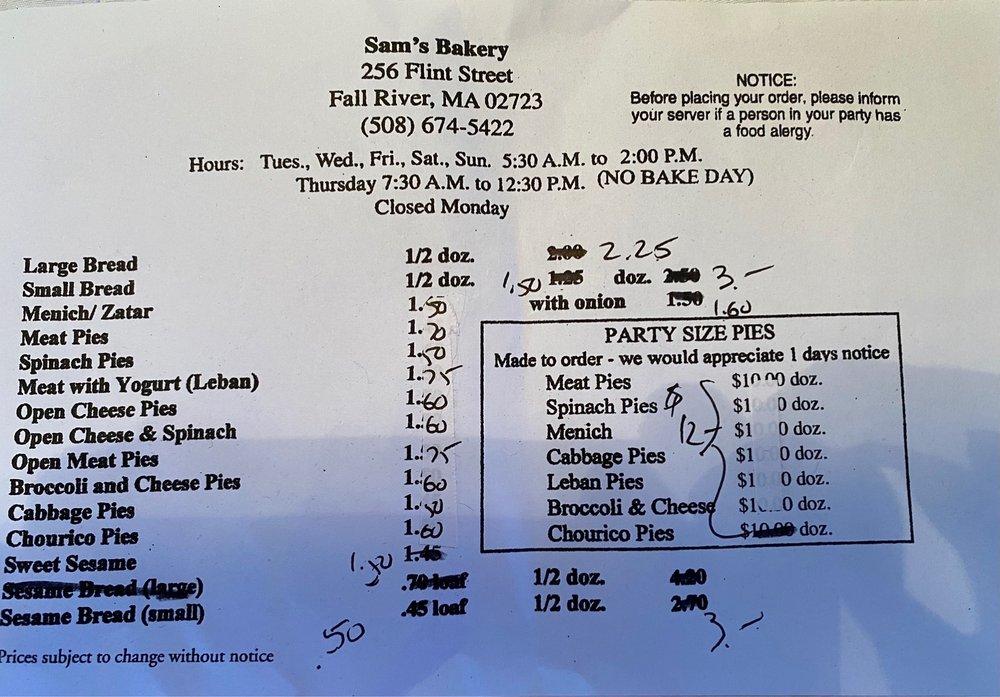 Sam's Bakery
256 Flint Street
Fall River, MA 02723
(508) 674-5422
NOTICE:
Before placing your order, please inform
your server if a person in your party has
a food alergy.
Hours: Tues., Wed., Fri., Sat., Sun. 5:30 A.M. to 2:00 P.M.
Thursday 7:30 A.M. to 12:30 P.M. (NO BAKE DAY)
Closed Monday
Large Bread 1/2 doz. 2.00 2.25
Small Bread 1/2 doz. 1.50 1.25 doz. 2.50 3.-
Menich/ Zatar 1.50 with onion 1.50 1.60
Meat Pies 1.70
Spinach Pies 1.50
Meat with Yogurt (Leban) 1.75
Open Cheese Pies 1.60
Open Cheese & Spinach 1.60
Open Meat Pies 1.75
Broccoli and Cheese Pies 1.60
Cabbage Pies 1.50
Chourico Pies 1.60
Sweet Sesame 1.50 1.45
Sesame Bread (large) .70 loaf 1/2 doz. 4.20
Sesame Bread (small) .45 loaf 1/2 doz. 2.70
.50 3.-
Prices subject to change without notice
PARTY SIZE PIES
Made to order - we would appreciate 1 days notice
Meat Pies $10.00 doz.
Spinach Pies $ $1 0 doz.
Menich 12- $1 0 doz.
Cabbage Pies $1 0 doz.
Leban Pies $1 0 doz.
Broccoli & Cheese $1 0 doz.
Chourico Pies $10.00 doz.